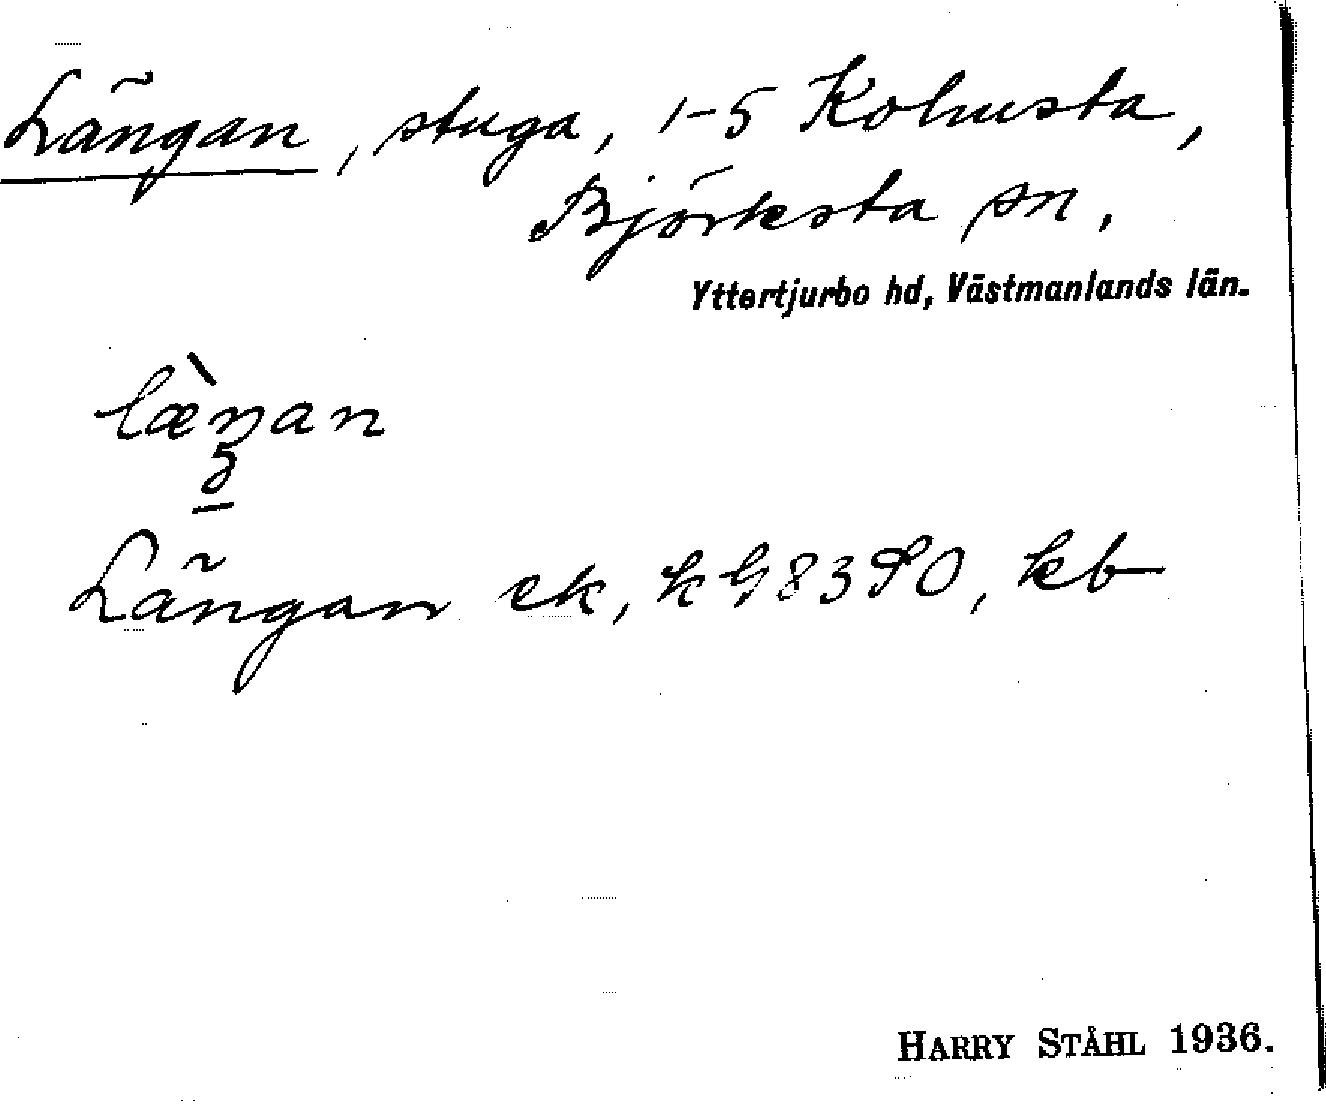 Längan, stuga, 1-5 Kolmsta,
Björksta sn,
Yttertjurbo hd, Västmanlands län.
læ̀ŋan
Längan ek, k G 8390, kb
HARRY STÅHL 1936.